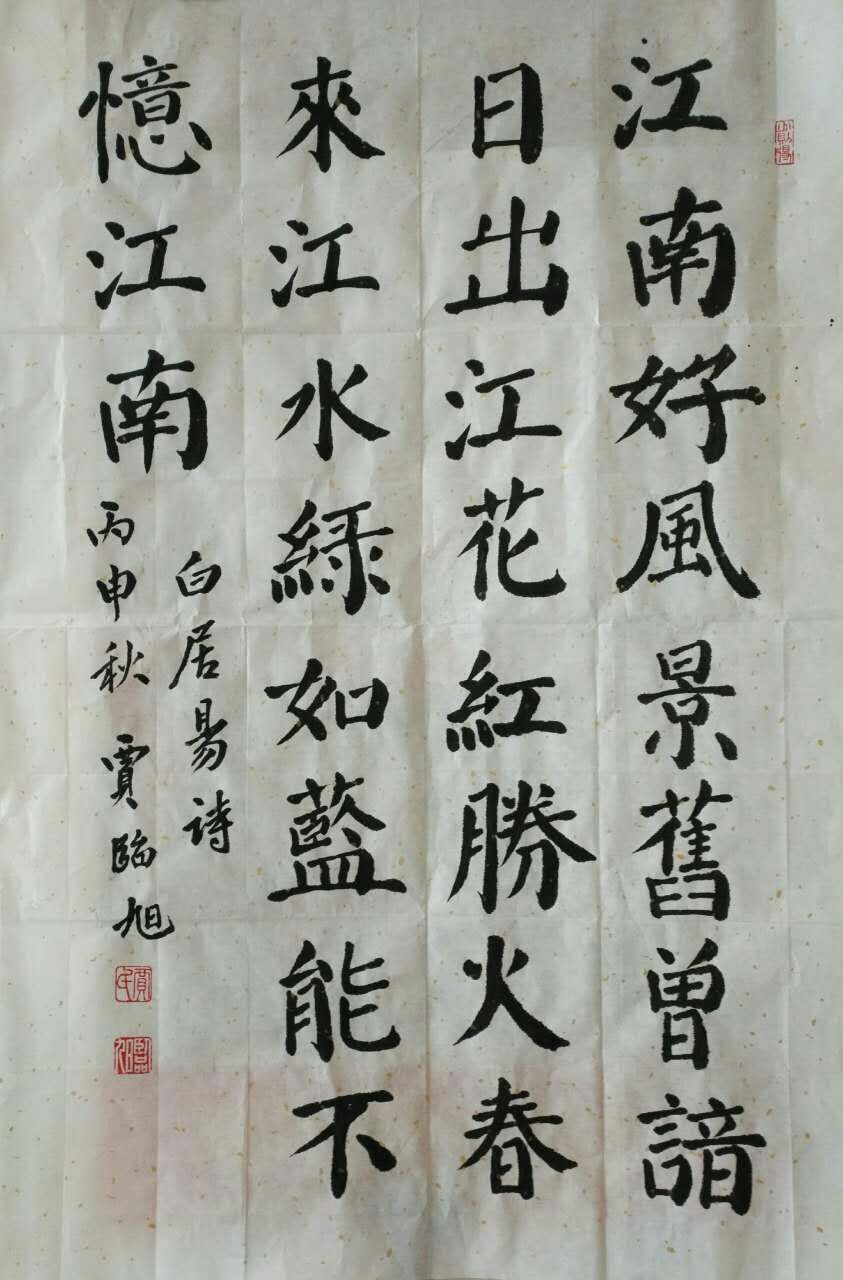 江南好風景舊曾諳
日出江花紅勝火春
來江水綠如藍能不
憶江南
白居易詩
丙申秋 賈臨旭